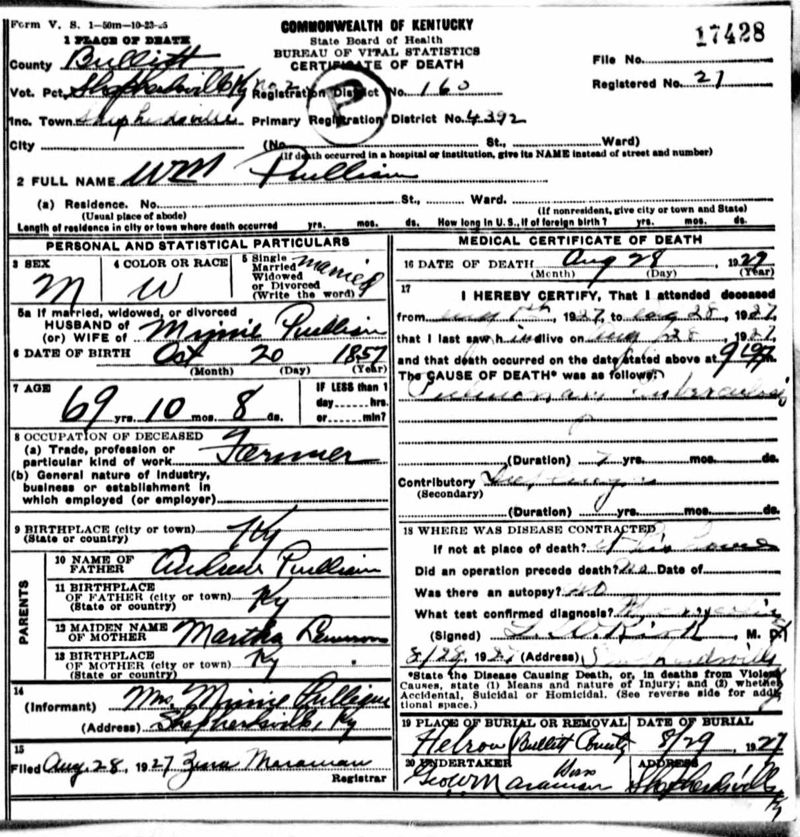 Form V. S. 1-50m-10-23-25
COMMONWEALTH OF KENTUCKY
State Board of Health
BUREAU OF VITAL STATISTICS
CERTIFICATE OF DEATH
17428
File No.
Registered No. 27
1 PLACE OF DEATH
County Bullitt
Vot. Pct. Shepherdsville Ky No 2 Registration District No. 160
P
Inc. Town Shepherdsville Primary Registration District No. 4392
City (No. St., Ward)
(If death occurred in a hospital or institution, give its NAME instead of street and number)
2 FULL NAME Wm Pulliam
(a) Residence. No. St., Ward.
(Usual place of abode) (If nonresident, give city or town and State)
Length of residence in city or town where death occurred yrs. mos. ds. How long in U.S., if of foreign birth? yrs. mos. ds.
PERSONAL AND STATISTICAL PARTICULARS
3 SEX M
4 COLOR OR RACE W
5 Single Married Widowed or Divorced (Write the word) Married
5a If married, widowed, or divorced
HUSBAND of
(or) WIFE of Minnie Pulliam
6 DATE OF BIRTH Oct 20 1857
(Month) (Day) (Year)
7 AGE
69 yrs. 10 mos. 8 ds.
IF LESS than 1
day hrs.
or min?
8 OCCUPATION OF DECEASED
(a) Trade, profession or
particular kind of work Farmer
(b) General nature of industry,
business or establishment in
which employed (or employer)
9 BIRTHPLACE (city or town)
(State or country) Ky
PARENTS
10 NAME OF
FATHER Andrew Pulliam
11 BIRTHPLACE
OF FATHER (city or town)
(State or country) Ky
12 MAIDEN NAME
OF MOTHER Martha
13 BIRTHPLACE
OF MOTHER (city or town)
(State or country) Ky
14
(Informant) Mrs Minnie Pulliam
(Address) Shepherdsville, Ky
15
Filed Aug. 28, 1927 Zora Maraman
Registrar
MEDICAL CERTIFICATE OF DEATH
16 DATE OF DEATH Aug 28, 1927
(Month) (Day) (Year)
17
I HEREBY CERTIFY, That I attended deceased
from 1927 to Aug 28, 1927,
that I last saw him alive on Aug 28, 1927,
and that death occurred on the date stated above at
The CAUSE OF DEATH* was as follows:
Pulmonary Tuberculosis
(Duration) yrs. mos. ds.
Contributory
(Secondary)
(Duration) yrs. mos. ds.
18 WHERE WAS DISEASE CONTRACTED
If not at place of death? At his home
Did an operation precede death? No Date of
Was there an autopsy? No
What test confirmed diagnosis?
(Signed) , M. D.
8/28, 1927 (Address) Shepherdsville
*State the Disease Causing Death, or, in deaths from Violent
Causes, state (1) Means and nature of Injury; and (2) whether
Accidental, Suicidal or Homicidal. (See reverse side for addi
tional space.)
19 PLACE OF BURIAL OR REMOVAL
Hebron Bullitt County
DATE OF BURIAL
8/29, 1927
20 UNDERTAKER
Geo W Maraman Sons
ADDRESS
Shepherdsville
Ky